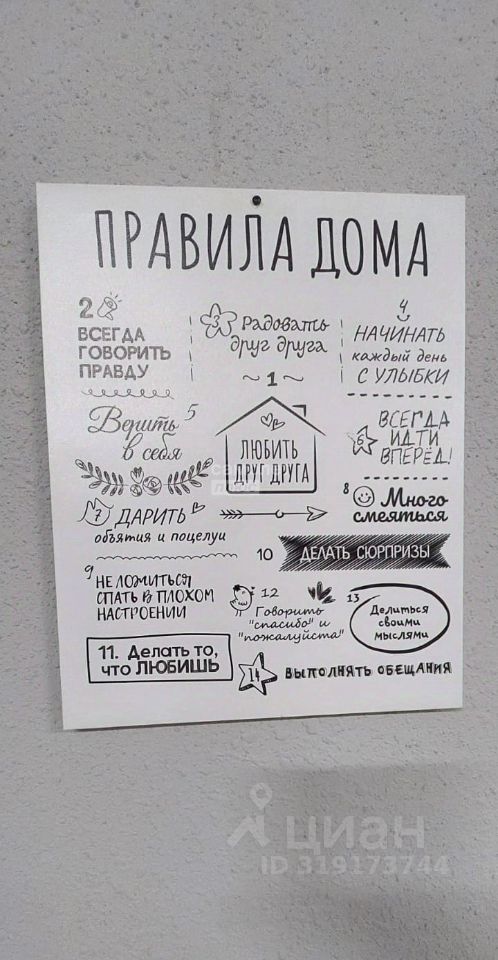 ПРАВИЛА ДОМА
2
ВСЕГДА
ГОВОРИТЬ
ПРАВДУ
3 Радовать
друг друга
4
НАЧИНАТЬ
каждый день
С УЛЫБКИ
~ 1 ~
ЛЮБИТЬ
ДРУГ ДРУГА
Верить 5
в себя
ВСЕГДА
6 ИДТИ
ВПЕРЁД!
7 ДАРИТЬ
объятия и поцелуи
8 Много
смеяться
9
НЕ ЛОЖИТЬСЯ
СПАТЬ В ПЛОХОМ
НАСТРОЕНИИ
10 ДЕЛАТЬ СЮРПРИЗЫ
11. Делать то,
что ЛЮБИШЬ
12
Говорить
"спасибо" и
"пожалуйста"
13
Делиться
своими
мыслями
14 ВЫПОЛНЯТЬ ОБЕЩАНИЯ
циан
ID 319173744